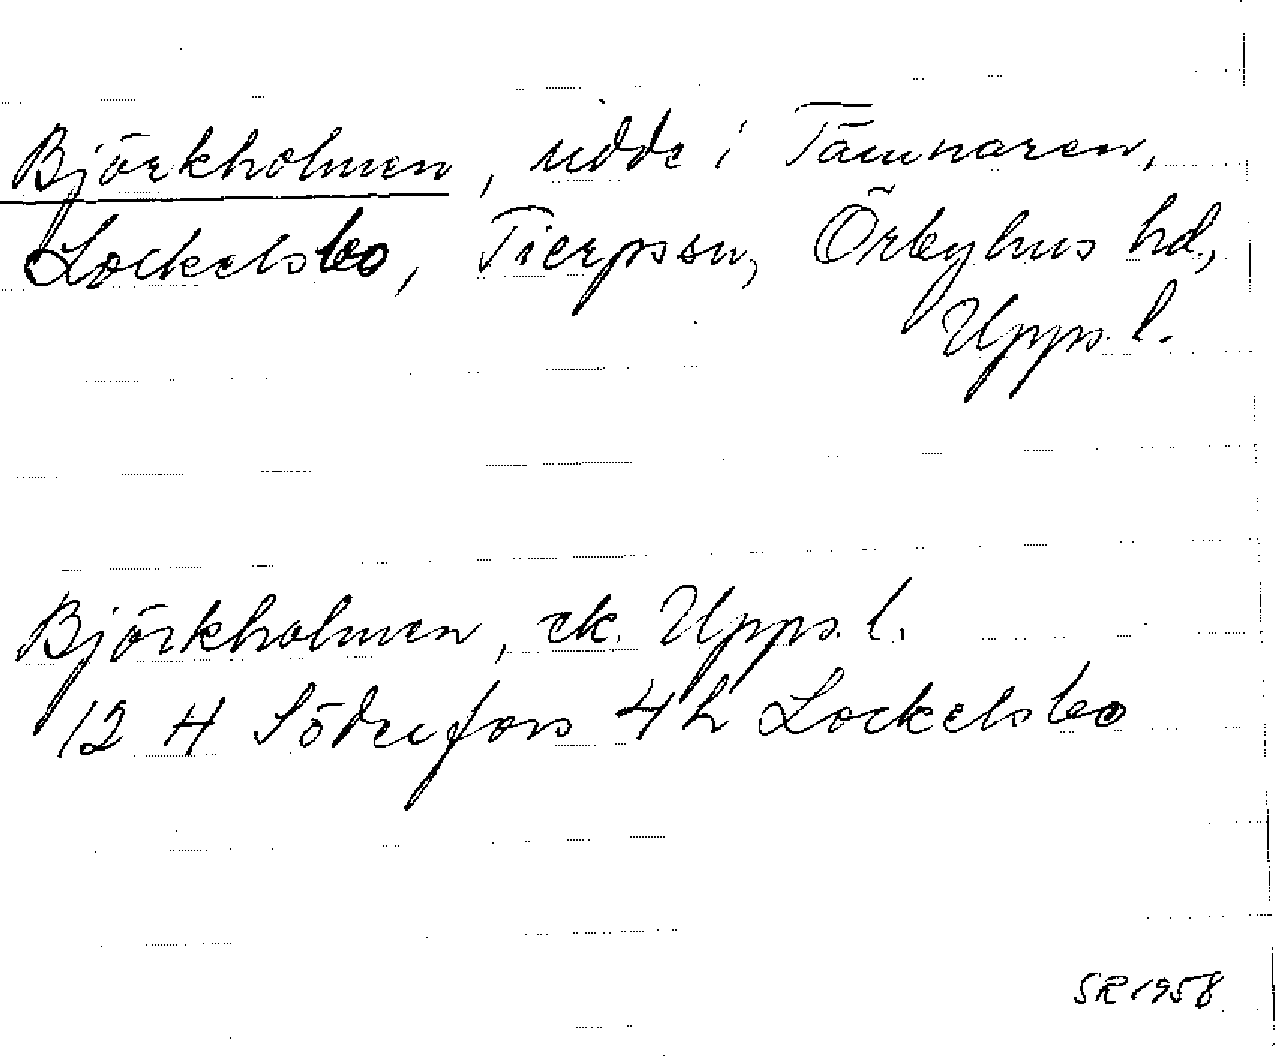 Björkholmen, udde i Tämnaren,
Lockelsbo, Tierps sn, Örbyhus hd,
Upps. l.
Björkholmen, ek. Upps. l.
12 H Söderfors 4h Lockelsbo
SR 1958